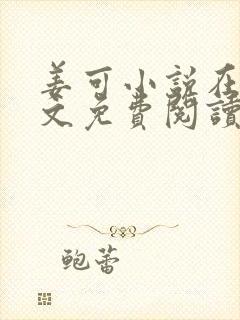 姜可小说在
文免費閱讀
鲍蕾